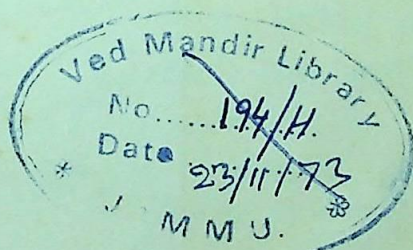 Ved Mandir Library
No......194/H.
Date 23/11/73
JAMMU.